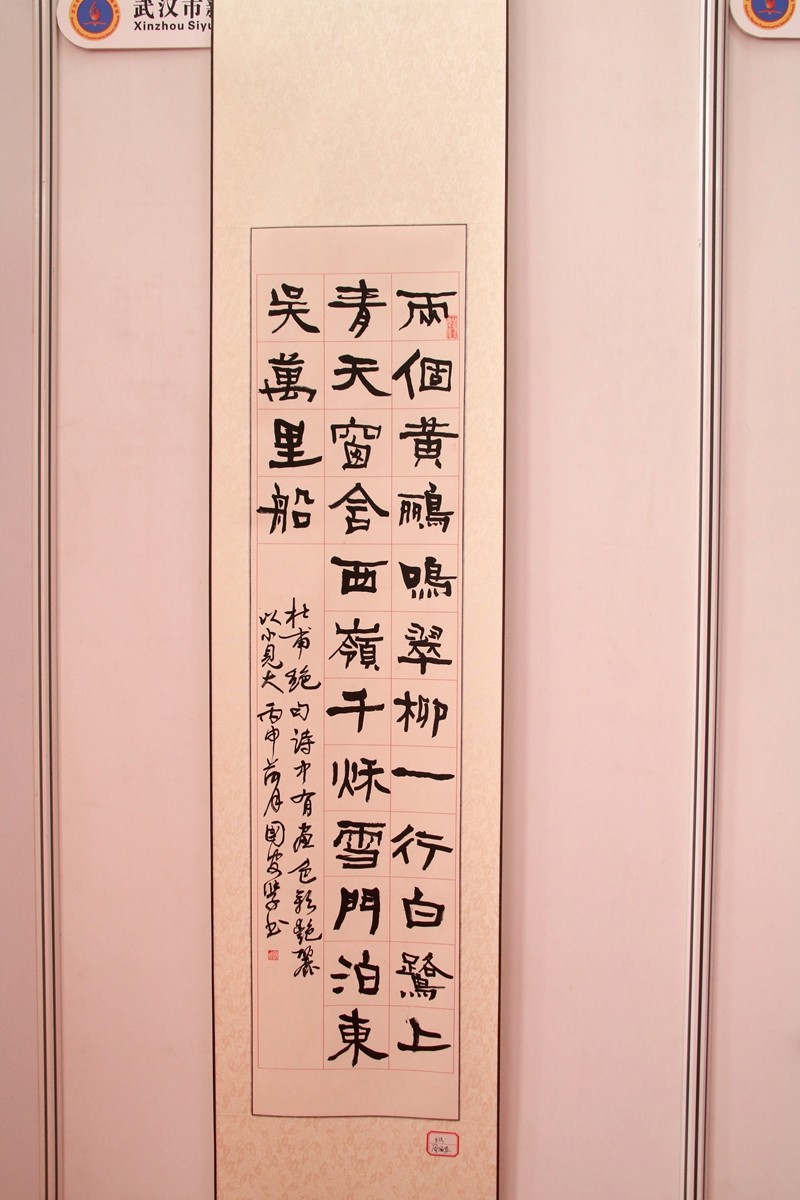 武汉市新
Xinzhou Siyu
兩個黄鸝鳴翠柳一行白鷺上
青天窗含西嶺千秋雪門泊東
吳萬里船
杜甫絶句诗中有畫色彩艷麗
以小見大丙申荷月國安學书